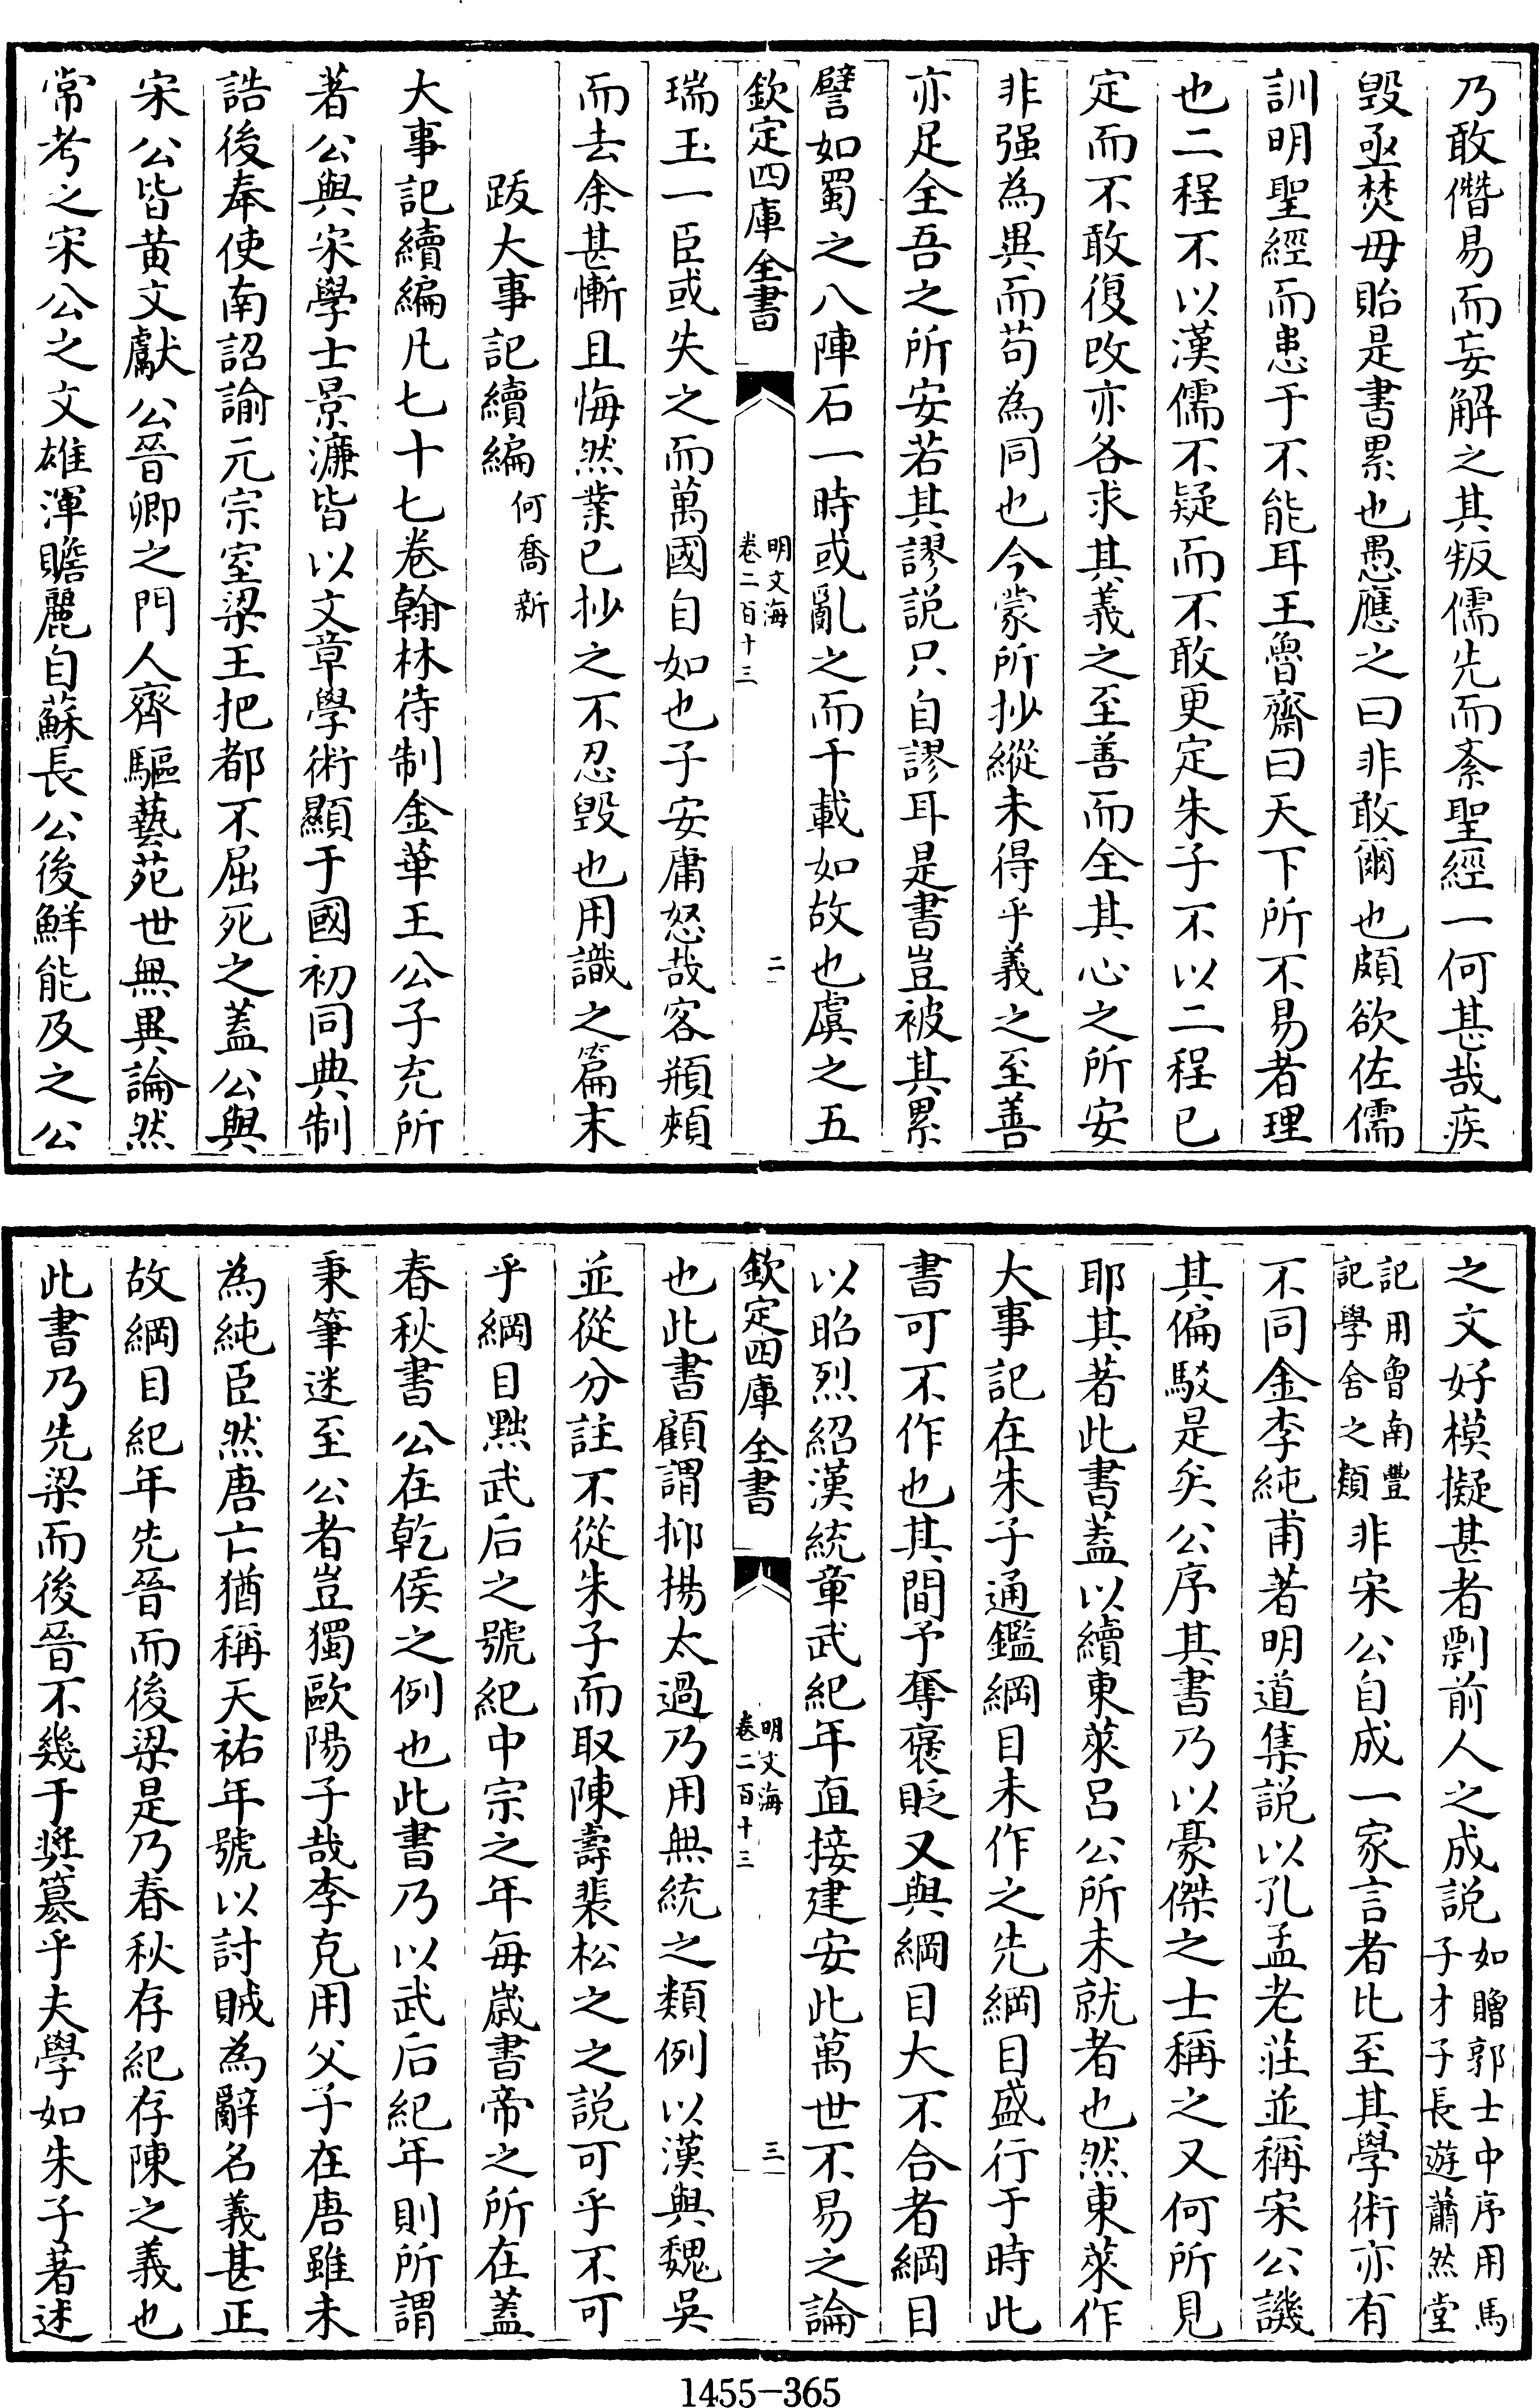 乃敢僭易而妄解之其叛儒先而紊聖經一何甚哉疾
毀亟焚毋貽是書累也愚應之曰非敢爾也頗欲佐儒
訓明聖經而患于不能耳王魯齋曰天下所不易者理
也二程不以漢儒不疑而不敢更定朱子不以二程已
定而不敢復改亦各求其義之至善而全其心之所安
非强為異而苟為同也今蒙所抄縱未得乎義之至善
亦足全吾之所安若其謬説只自謬耳是書豈被其累
譬如蜀之八陣石一時或亂之而千載如故也虞之五
欽定四庫全書
明文海
卷二百十三
二
瑞玉一臣或失之而萬國自如也子安庸怒哉客頩頰
而去余甚慚且悔然業已抄之不忍毀也用識之篇末
跋大事記續編何喬新
大事記續編凡七十七卷翰林待制金華王公子充所
著公與宋學士景濂皆以文章學術顯于國初同典制
誥後奉使南詔諭元宗室梁王把都不屈死之蓋公與
宋公皆黄文獻公晉卿之門人齊驅藝苑世無異論然
常考之宋公之文雄渾贍麗自蘇長公後鮮能及之公
之文好模擬甚者剽前人之成説如贈郭士中序用馬
子才子長遊蕭然堂
記用曾南豐
記學舍之類非宋公自成一家言者比至其學術亦有
不同金李純甫著明道集説以孔孟老莊並稱宋公譏
其偏駁是矣公序其書乃以豪傑之士稱之又何所見
耶其著此書蓋以續東萊吕公所未就者也然東萊作
大事記在朱子通鑑綱目未作之先綱目盛行于時此
書可不作也其間予奪褒貶又與綱目大不合者綱目
以昭烈紹漢統章武紀年直接建安此萬世不易之論
欽定四庫全書
明文海
卷二百十三
三
也此書顧謂抑揚太過乃用無統之類例以漢與魏吳
並從分註不從朱子而取陳壽裴松之之説可乎不可
乎綱目黜武后之號紀中宗之年每歲書帝之所在蓋
春秋書公在乾侯之例也此書乃以武后紀年則所謂
秉筆迷至公者豈獨歐陽子哉李克用父子在唐雖未
為純臣然唐亡猶稱天祐年號以討賊為辭名義甚正
故綱目紀年先晉而後梁是乃春秋存紀存陳之義也
此書乃先梁而後晉不幾于奬簒乎夫學如朱子著述
1455-365